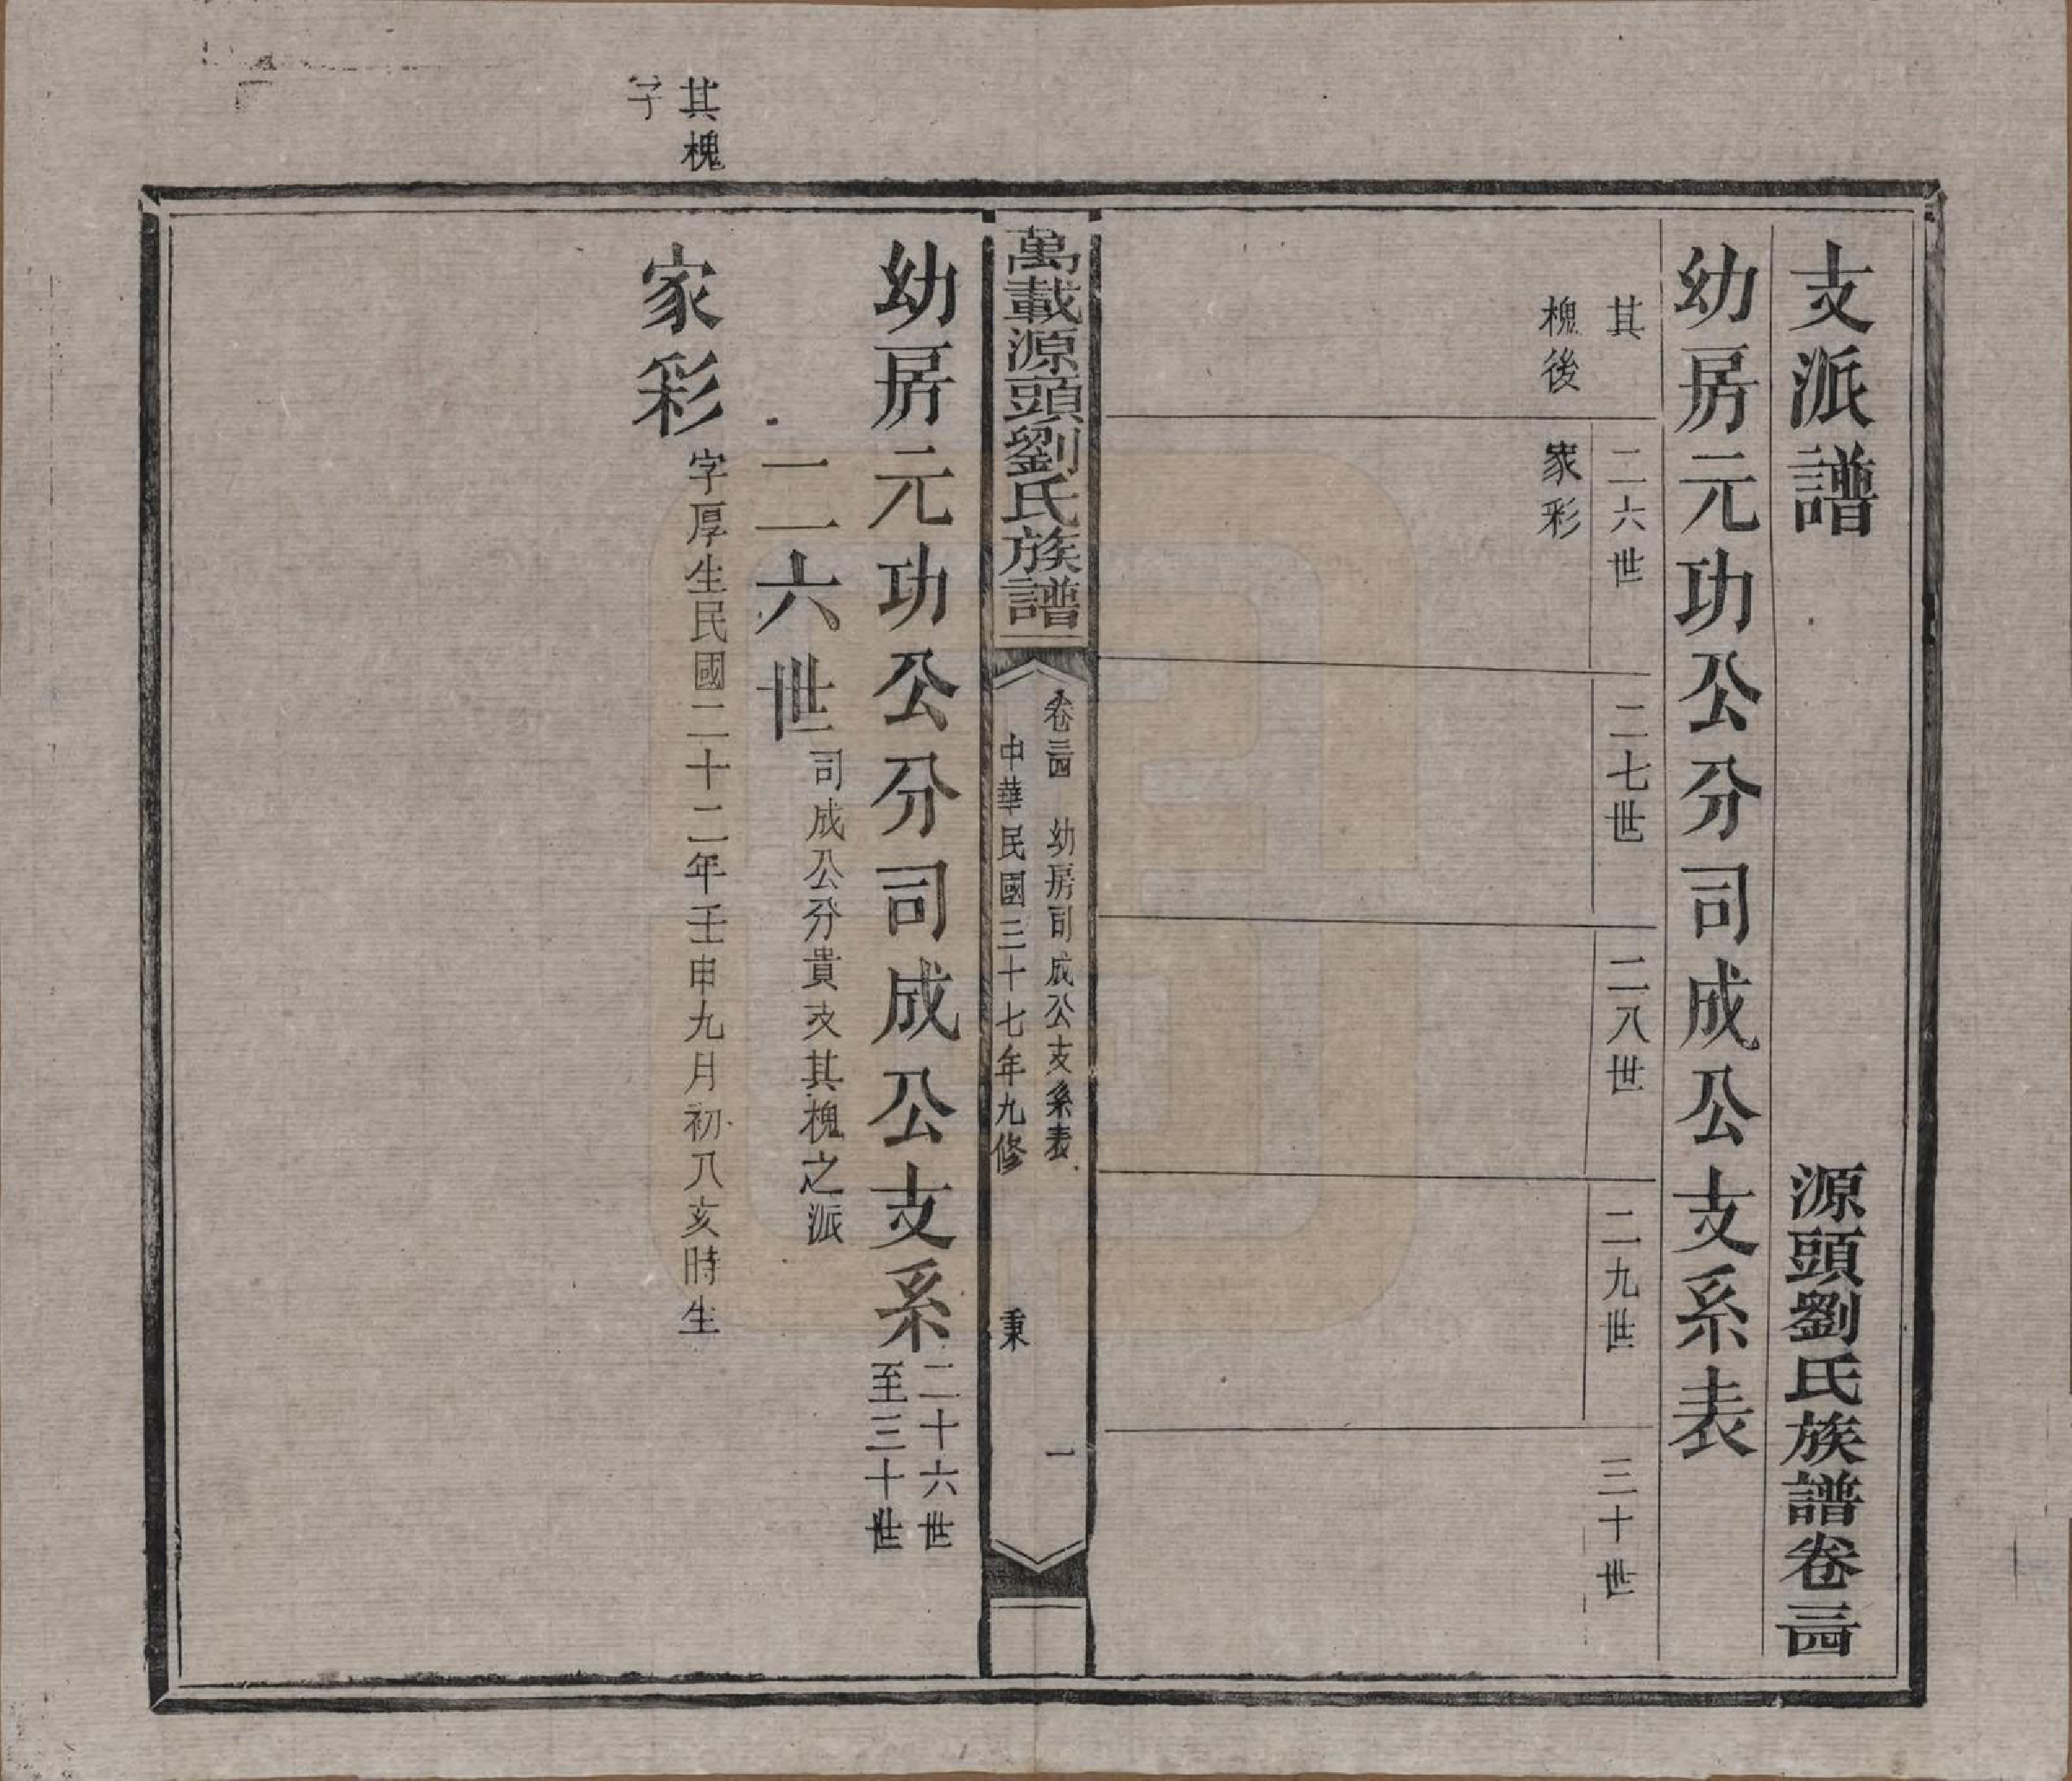 支派譜
源頭劉氏族譜卷三四
幼房元功公分司成公支系表
其
槐後
二六世
家彩
二七世
二八世
二九世
三十世
萬載源頭劉氏族譜
卷三四 幼房司成公支系表 一
中華民國三十七年九修 秉
幼房元功公分司成公支系
二十六世
至三十世
二六世
司成公分貴支其槐之派
其槐
子
家彩
字厚生民國二十二年壬申九月初八亥時生